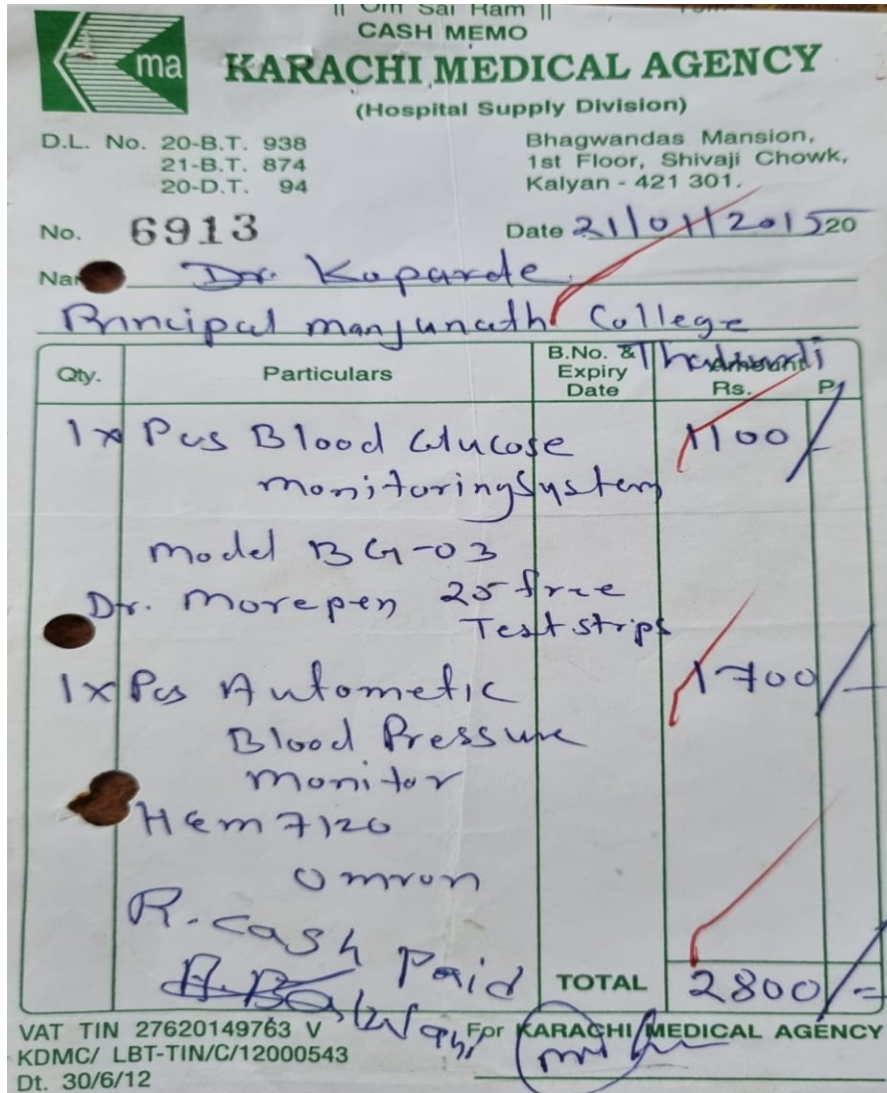 || Om Sai Ram ||
CASH MEMO
ma
KARACHI MEDICAL AGENCY
(Hospital Supply Division)
D.L. No. 20-B.T. 938
21-B.T. 874
20-D.T. 94
Bhagwandas Mansion,
1st Floor, Shivaji Chowk,
Kalyan - 421 301.
No. 6913
Date 21/01/2015 20
Dr. Koparde
Principal Manjunath College
Qty. Particulars B.No. & Expiry Date Amount Rs. P.
1x Pcs Blood Glucose 1100/-
monitoring System
Model BG-03
Dr. Morepen 25 free
Test strips
1x Pcs Autometic 1700/-
Blood Pressure
monitor
Hem 7120
Omron
R. Cash Paid
TOTAL 2800/=
VAT TIN 27620149763 V
For KARACHI MEDICAL AGENCY
KDMC/ LBT-TIN/C/12000543
Dt. 30/6/12